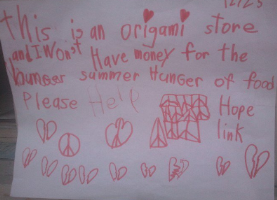 12/23
this is an origami store
and I Wonst Have money for the
bunger summer Hunger of food
Please Help
Hope
link